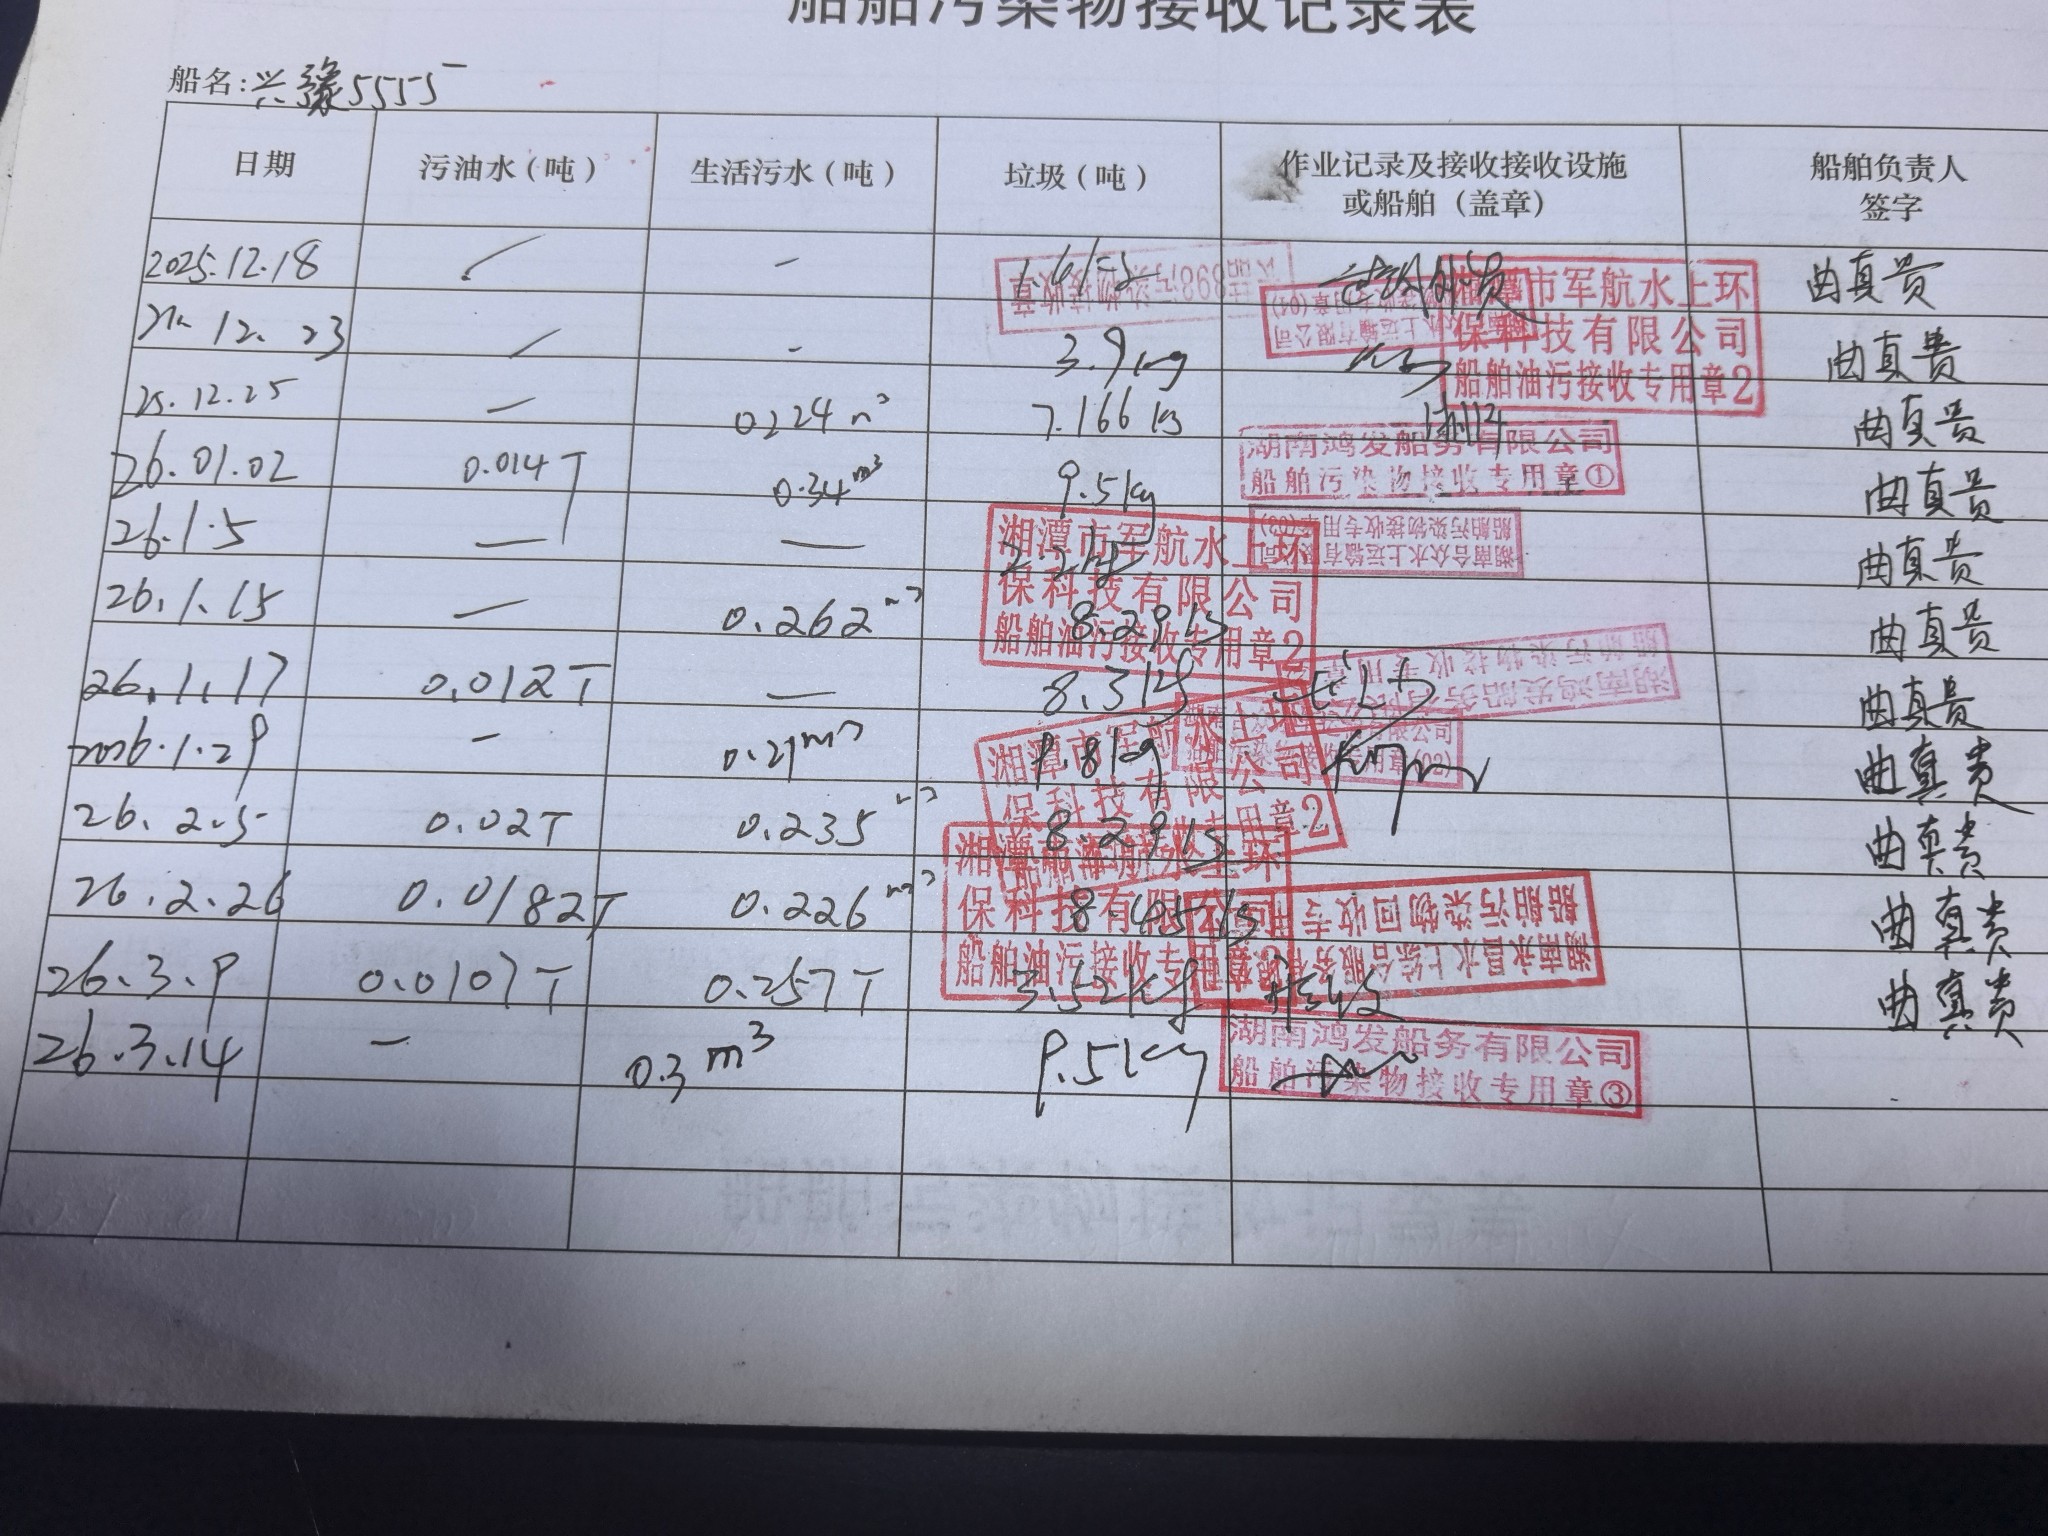 船舶污染物接收记录表
船名:兴豫5555
日期 污油水(吨) 生活污水(吨) 垃圾(吨) 作业记录及接收接收设施或船舶(盖章) 船舶负责人签字
2025.12.18 — — 曲真贵
12.23 — — 3.9kg 曲真贵
25.12.25 — 0.224m³ 7.166kg 曲真贵
26.01.02 0.014T 0.34m³ 9.5kg 曲真贵
26.1.5 — — 曲真贵
26.1.15 — 0.262m³ 8.29kg 曲真贵
26.1.17 0.012T — 8.3kg 曲真贵
2026.1.29 — 0.21m³ 曲真贵
26.2.5 0.02T 0.235m³ 8.29kg 曲真贵
26.2.26 0.0182T 0.226m³ 8.45kg 曲真贵
26.3.9 0.0107T 0.257T 3.52kg 接收 曲真贵
26.3.14 — 0.3m³ 9.5kg
湘潭市军航水上环
保科技有限公司
船舶油污接收专用章2
湖南鸿发船务有限公司
船舶污染物接收专用章①
湖南合众水上运输有限公司
船舶污染物接收专用章(03)
湘潭市军航水上环
保科技有限公司
船舶油污接收专用章2
湖南鸿发船务有限公司
船舶污染物接收专用章
湘潭市军航水上环
保科技有限公司
湘潭市军航水上环
保科技有限公司
船舶油污接收专用章2
湖南永昌水上综合服务有限公司
船舶污染物回收专用章
湖南鸿发船务有限公司
船舶污染物接收专用章③